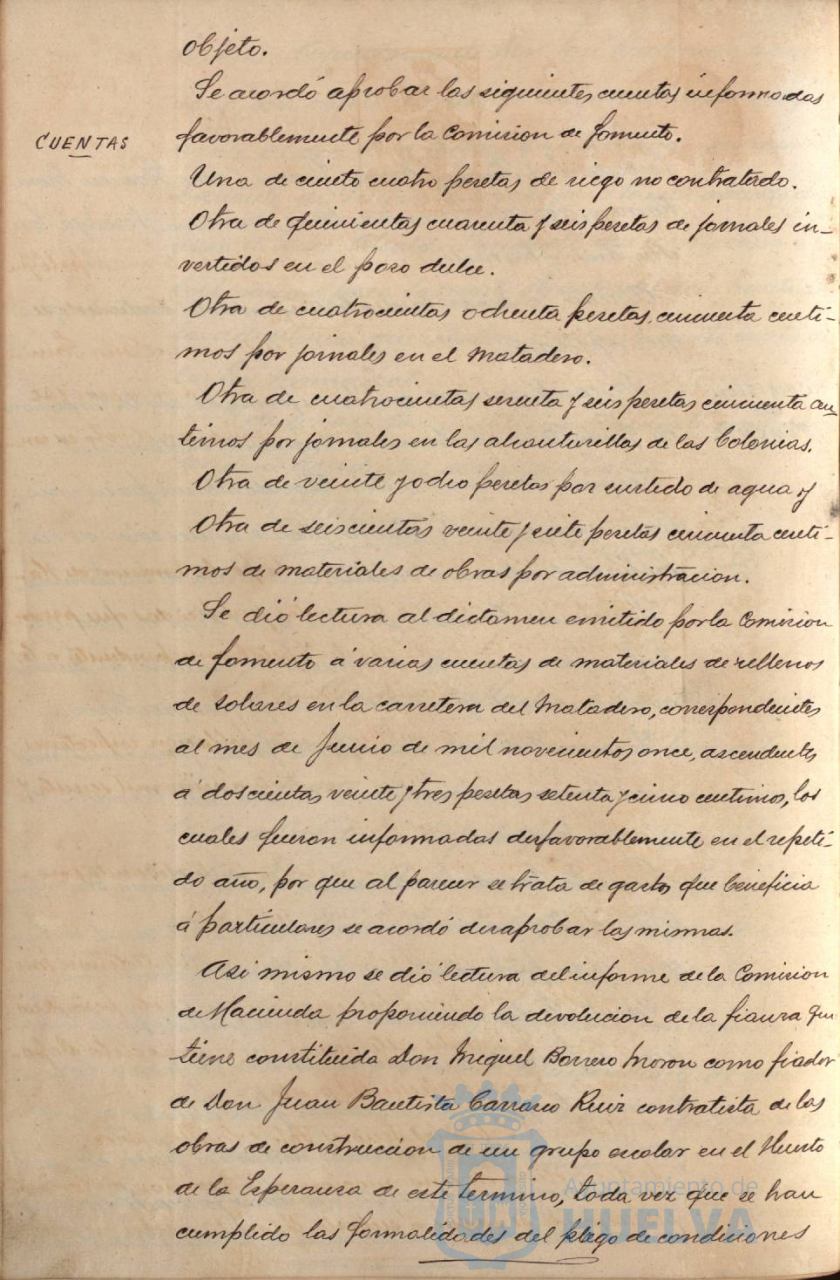 objeto.
Se acordó aprobar las siguientes cuentas informadas
CUENTAS
favorablemente por la Comision de fomento.
Una de ciento cuatro pesetas de riego no contratado.
Otra de quinientas cuarenta y seis pesetas de jornales in-
vertidos en el pozo dulce.
Otra de cuatrocientas ochenta pesetas cincuenta centi-
mos por jornales en el Matadero.
Otra de cuatrocientas sesenta y seis pesetas cincuenta cen
timos por jornales en las alcantarillas de las Colonias.
Otra de veinte y ocho pesetas por surtido de agua y
Otra de seiscientas veinte y siete pesetas cincuenta centi-
mos de materiales de obras por administracion.
Se dió lectura al dictamen emitido por la Comision
de fomento á varias cuentas de materiales de rellenos
de solares en la carretera del Matadero, correspondientes
al mes de Junio de mil novecientos once, ascendentes
á doscientas veinte y tres pesetas setenta y cinco centimos, los
cuales fueron informadas desfavorablemente en el repeti-
do año, por que al parecer se trata de gasto que beneficia
á particulares se acordó desaprobar las mismas.
Asi mismo se dió lectura del informe de la Comision
de Hacienda proponiendo la devolucion de la fianza que
tiene constituida Don Miguel Borrero Moron como fiador
de Don Juan Bautista Carrasco Ruiz contratista de las
obras de construccion de un grupo escolar en el Huerto
de la Esperanza de este termino, toda vez que se han
cumplido las formalidades del pliego de condiciones
Ayuntamiento de
HUELVA